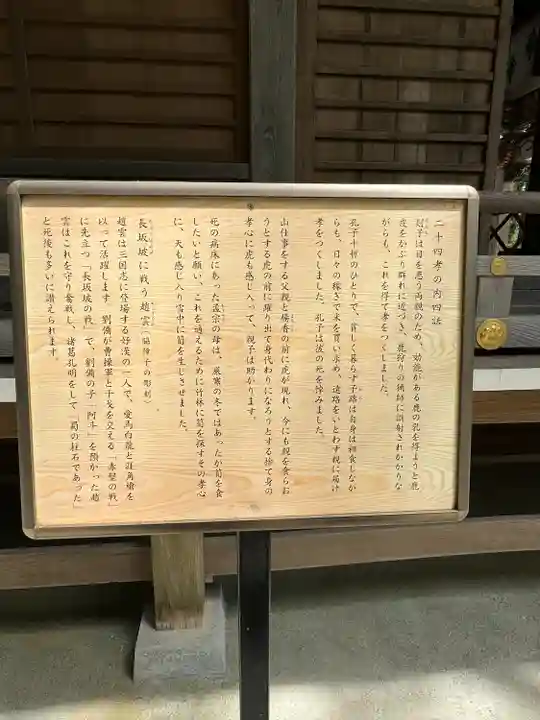 二十四孝の内四話
剡子は目を患う両親のため、効能がある鹿の乳を得ようと鹿
皮をかぶり群れに近づき、鹿狩りの猟師に誤射されかかりな
がらも、これを得て孝をつくしました。
孔子十哲のひとりで、貧しく暮らす子路は自身は粗食しなが
らも、日々の稼ぎで米を買い求め、遠路をいとわず親に届け
孝をつくしました。孔子は彼の死を悼みました。
山仕事をする父親と楊香の前に虎が現れ、今にも親を食らお
うとする虎の前に躍り出て身代わりになろうとする捨て身の
孝心に虎も感じ入って、親子は助かります。
死の病床にあった孟宗の母は、厳寒の冬ではあったが筍を食
したいと願い、これを適えるために竹林に筍を探すその孝心
に、天も感じ入り雪中に筍を生じさせました。
長坂坡に戦う趙雲〈脇障子の彫刻〉
趙雲は三国志に登場する好漢の一人で、愛馬白龍と涯角槍を
以って活躍します。劉備が曹操軍と干戈を交える「赤壁の戦」
に先立つ「長坂坡の戦」で、劉備の子「阿斗」を預かった趙
雲はこれを守り奮戦し、諸葛孔明をして「蜀の柱石であった」
と死後も多いに讃えられます。